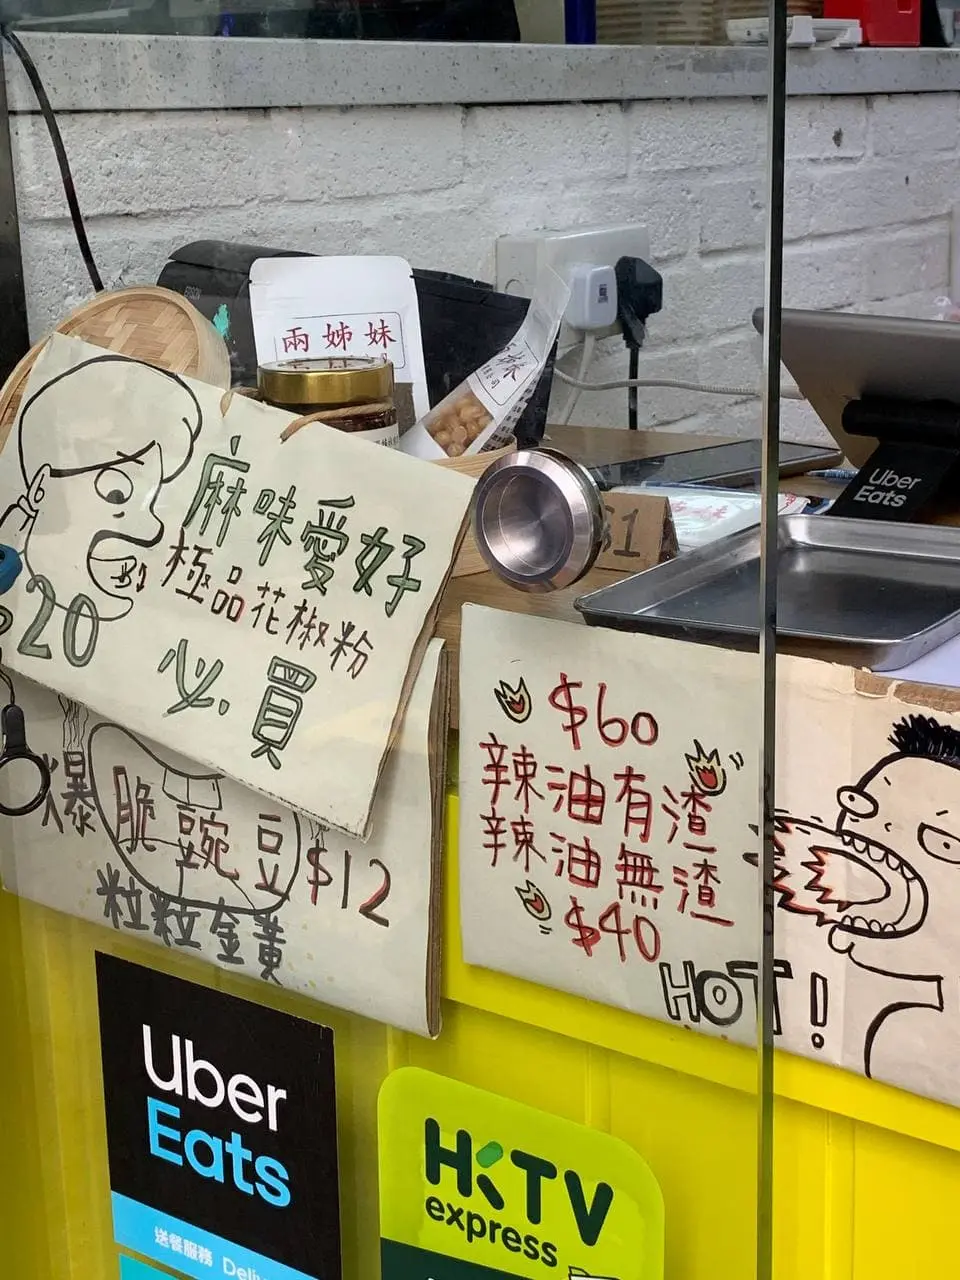 兩姊妹
Uber
Eats
$1
麻味愛好
極品花椒粉
$20
必買
爆脆豌豆$12
粒粒金黃
$60
辣油有渣
辣油無渣
$40
HOT!
Uber
Eats
送餐服務
HKTV
express